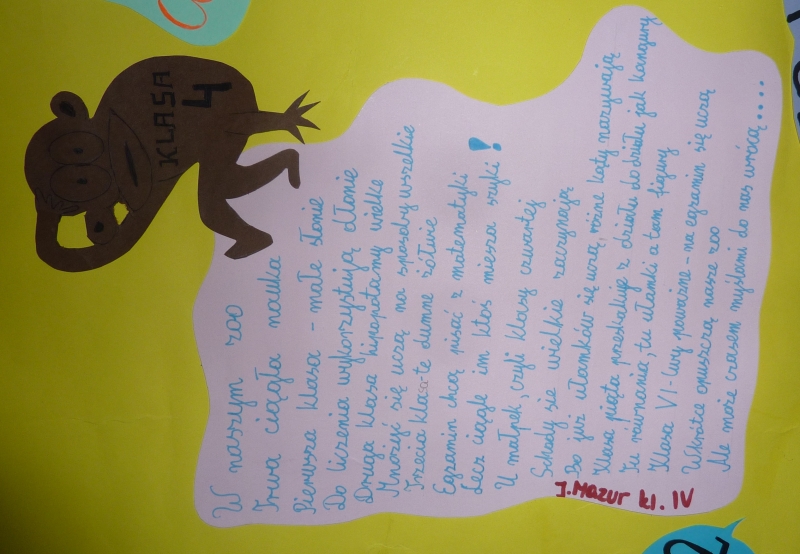 KLASA
4
W naszym zoo
Trwa ciągła nauka
Pierwsza klasa - małe słonie
Do liczenia wykorzystują dłonie
Druga klasa hipopotamy wielkie
Mnożyć się uczą na sposoby wszelkie
Trzecia klasa-te dumne żółwie
Egzamin chcą pisać z matematyki
Lecz ciągle im ktoś miesza szyki!
U małpek, czyli klasy czwartej
Schody się wielkie zaczynają
Bo już ułamków się uczą, różne kąty nazywają
Klasa piąta przeskakuje z działu do działu jak kangury
Tu równania, tu ułamki a tam figury
Klasa VI - lwy poważne - na egzamin się uczą
Wkrótce opuszczą nasze zoo
Ale może czasem myślami do nas wrócą....
J. Mazur kl. IV
2